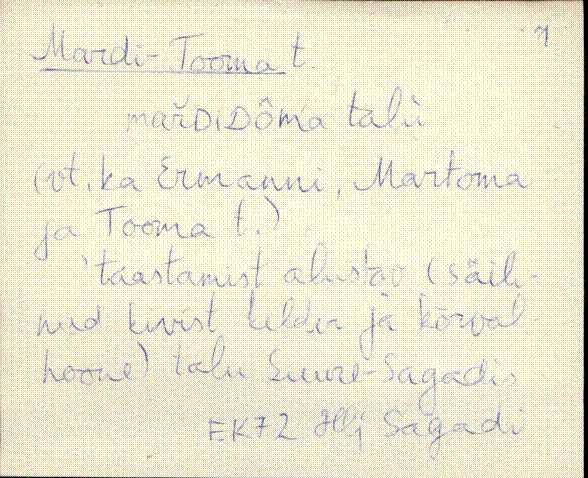 7
Mardi-Tooma t.
mar̆DiDôma talù
(vt. ka Ermanni, Martoma
ja Tooma t.)
'taastamist alustav (säili-
nud kivist kelder ja kõrval-
hoone) talu Suure-Sagadis
EK72 Hlj Sagadi